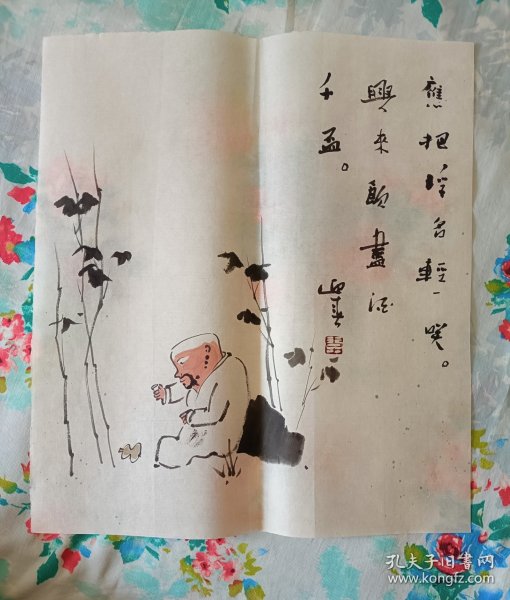 應把浮名輕一咲。
興來傾盡酒
千盃。
孔夫子旧书网
www.kongfz.com